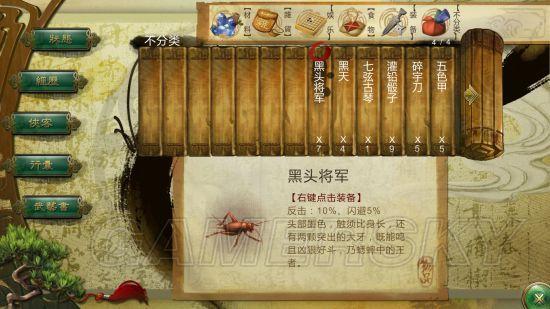 材料
雜質
娱乐
食物
装备
不分类
不分类
4 / 4
狀態
經歷
侠客
行囊
武器書
黑头将军
X7
黑天
X4
七弦古琴
X1
灌铅骰子
X9
碎宇刀
X5
五色甲
X5
黑头将军
【右键点击装备】
反击：10%、闪避5%
头部墨色，触须比身长，还
有两颗突出的大牙，既能鸣
且凶狠好斗，乃蟋蟀中的王
者。
物品